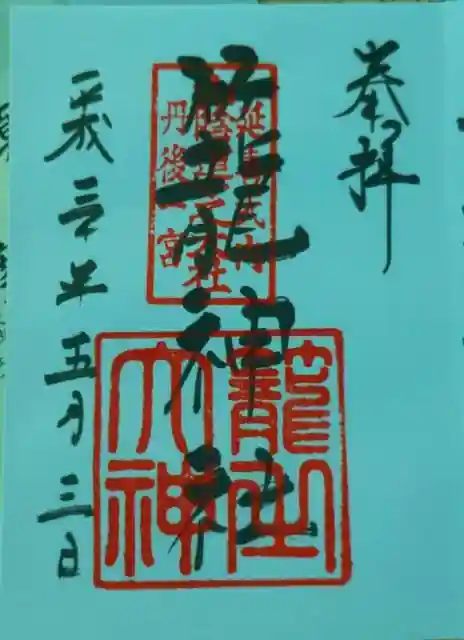 奉拝
延喜式内
丹後一宮
籠神社
籠之
大神
平成三十年五月三日